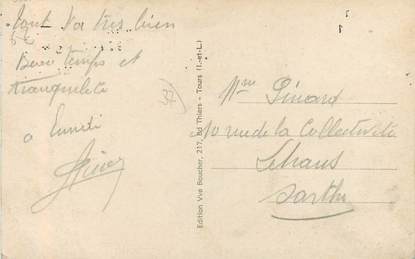 tout va très bien
Beau temps et
tranquilité
a
Edition Vve Boucher, 217, Bd Thiers - Tours (I.-et-L.)
Mme Pinard
10 rue de la Collectivité
Le Mans
Sarthe